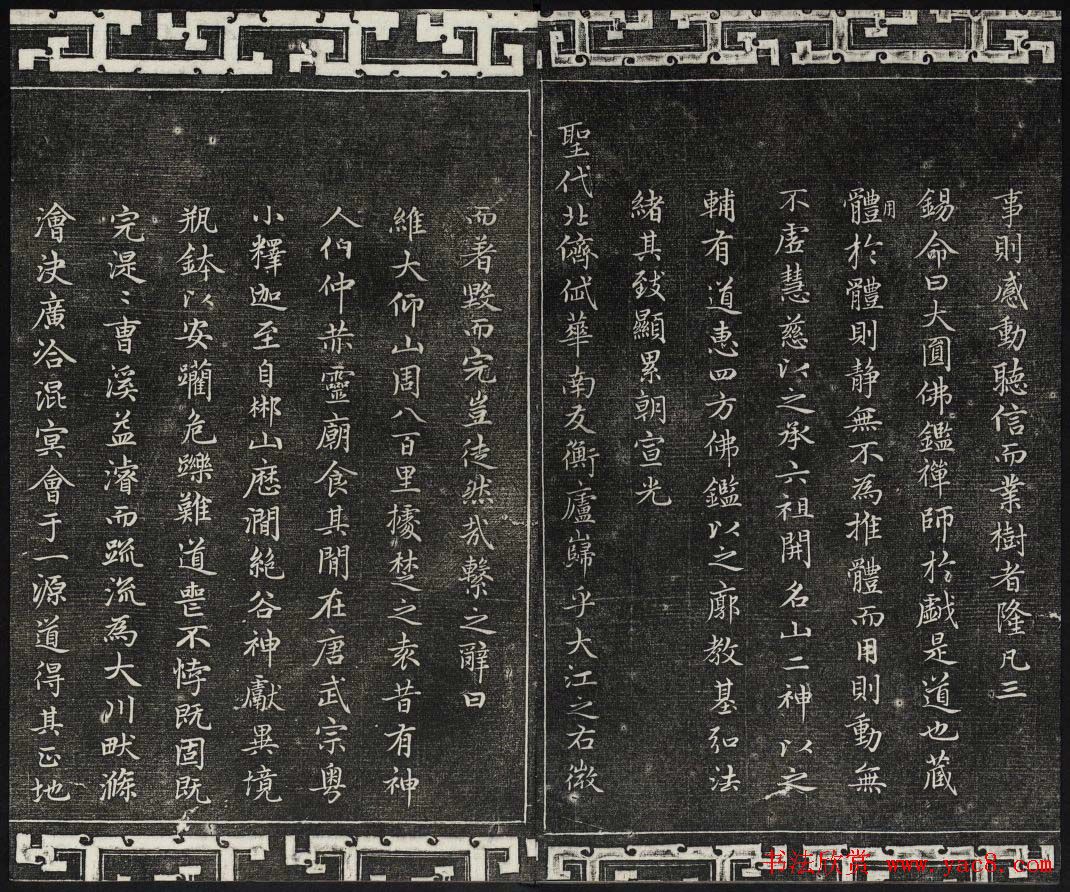 事則感動聽信而業樹者隆凡三
錫命曰大圓佛鑑禪師於戱是道也蔵
體用於體則静無不為推體而用則動無
不虛慧慈以之承六祖開名山二神以之
輔有道惠四方佛鑑以之廓教基弘法
緒其致顯累朝宣光
聖代北儕岱華南友衡廬歸乎大江之右徵
而著毀而完豈徒然哉繫之辭曰
維大仰山周八百里據楚之袁昔有神
人伯仲恭靈廟食其間在唐武宗粤
小釋迦至自郴山歷澗絶谷神獻異境
瓶鉢以安躪危躒難道喪不悖既固既
完湜〻曹溪益濬而疏流為大川畎滌
澮決廣洽混㝠會于一源道得其正地
书法欣赏 www.yac8.com